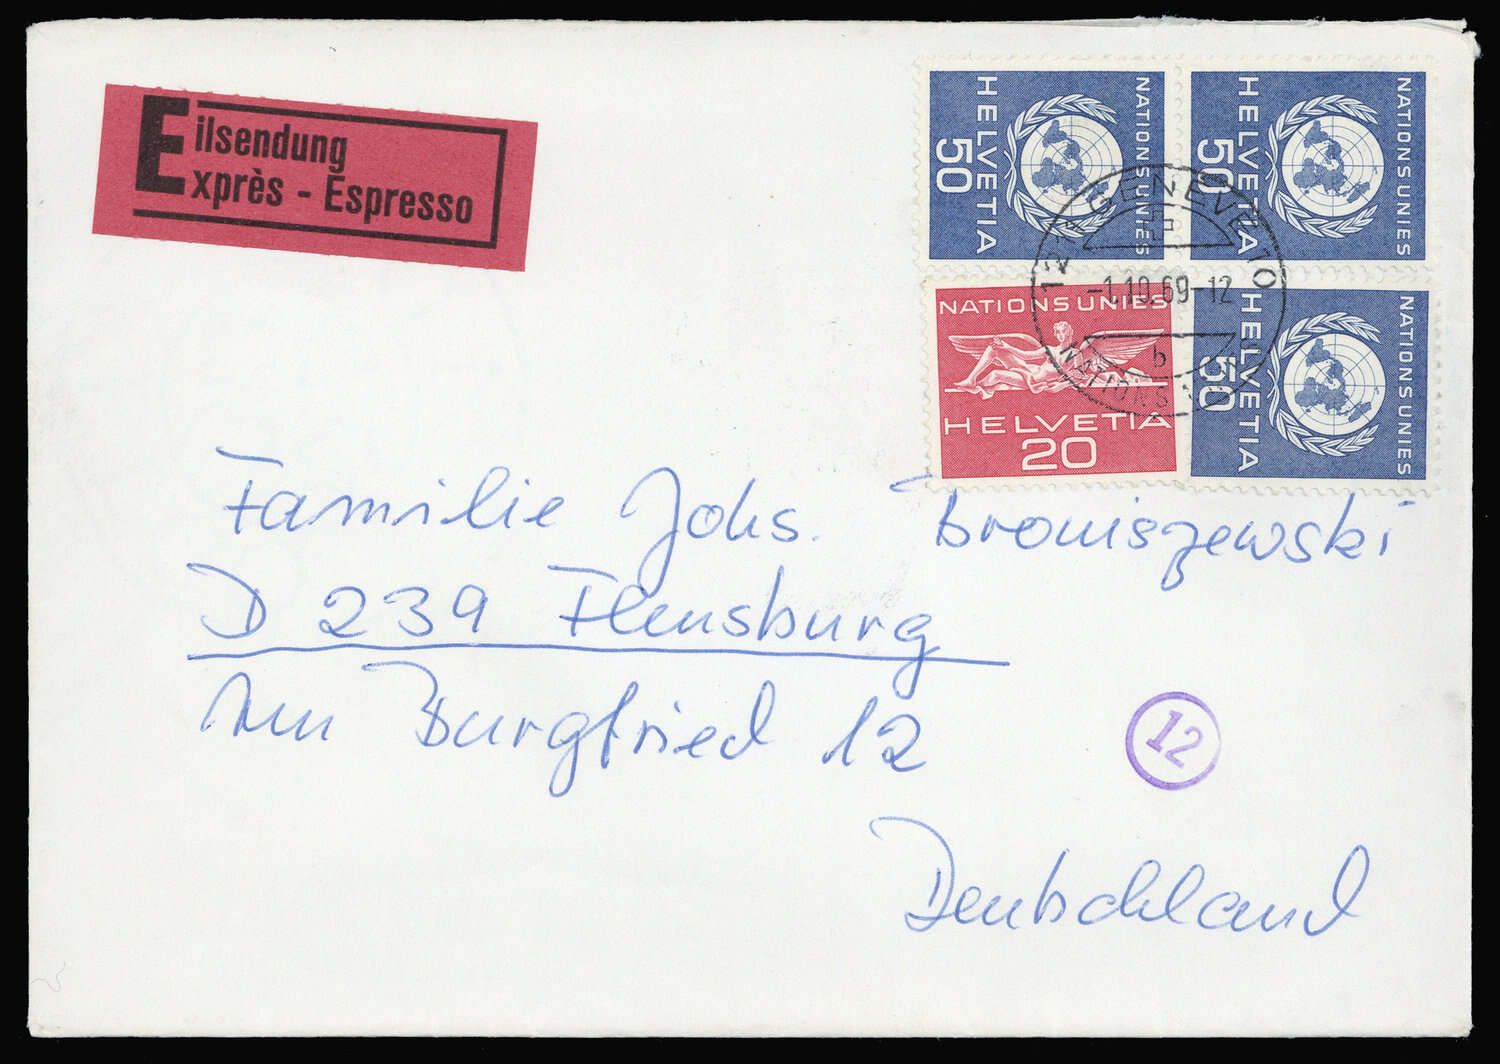 Eilsendung
Exprès - Espresso
NATIONS UNIES
HELVETIA
50
NATIONS UNIES
HELVETIA
50
NATIONS UNIES
HELVETIA
20
NATIONS UNIES
HELVETIA
50
1211 GENEVE 10
-1.10.69-12
b
NATIONS
Familie Johs. Broniszewski
D 239 Flensburg
Am Burgfried 12
12
Deutschland